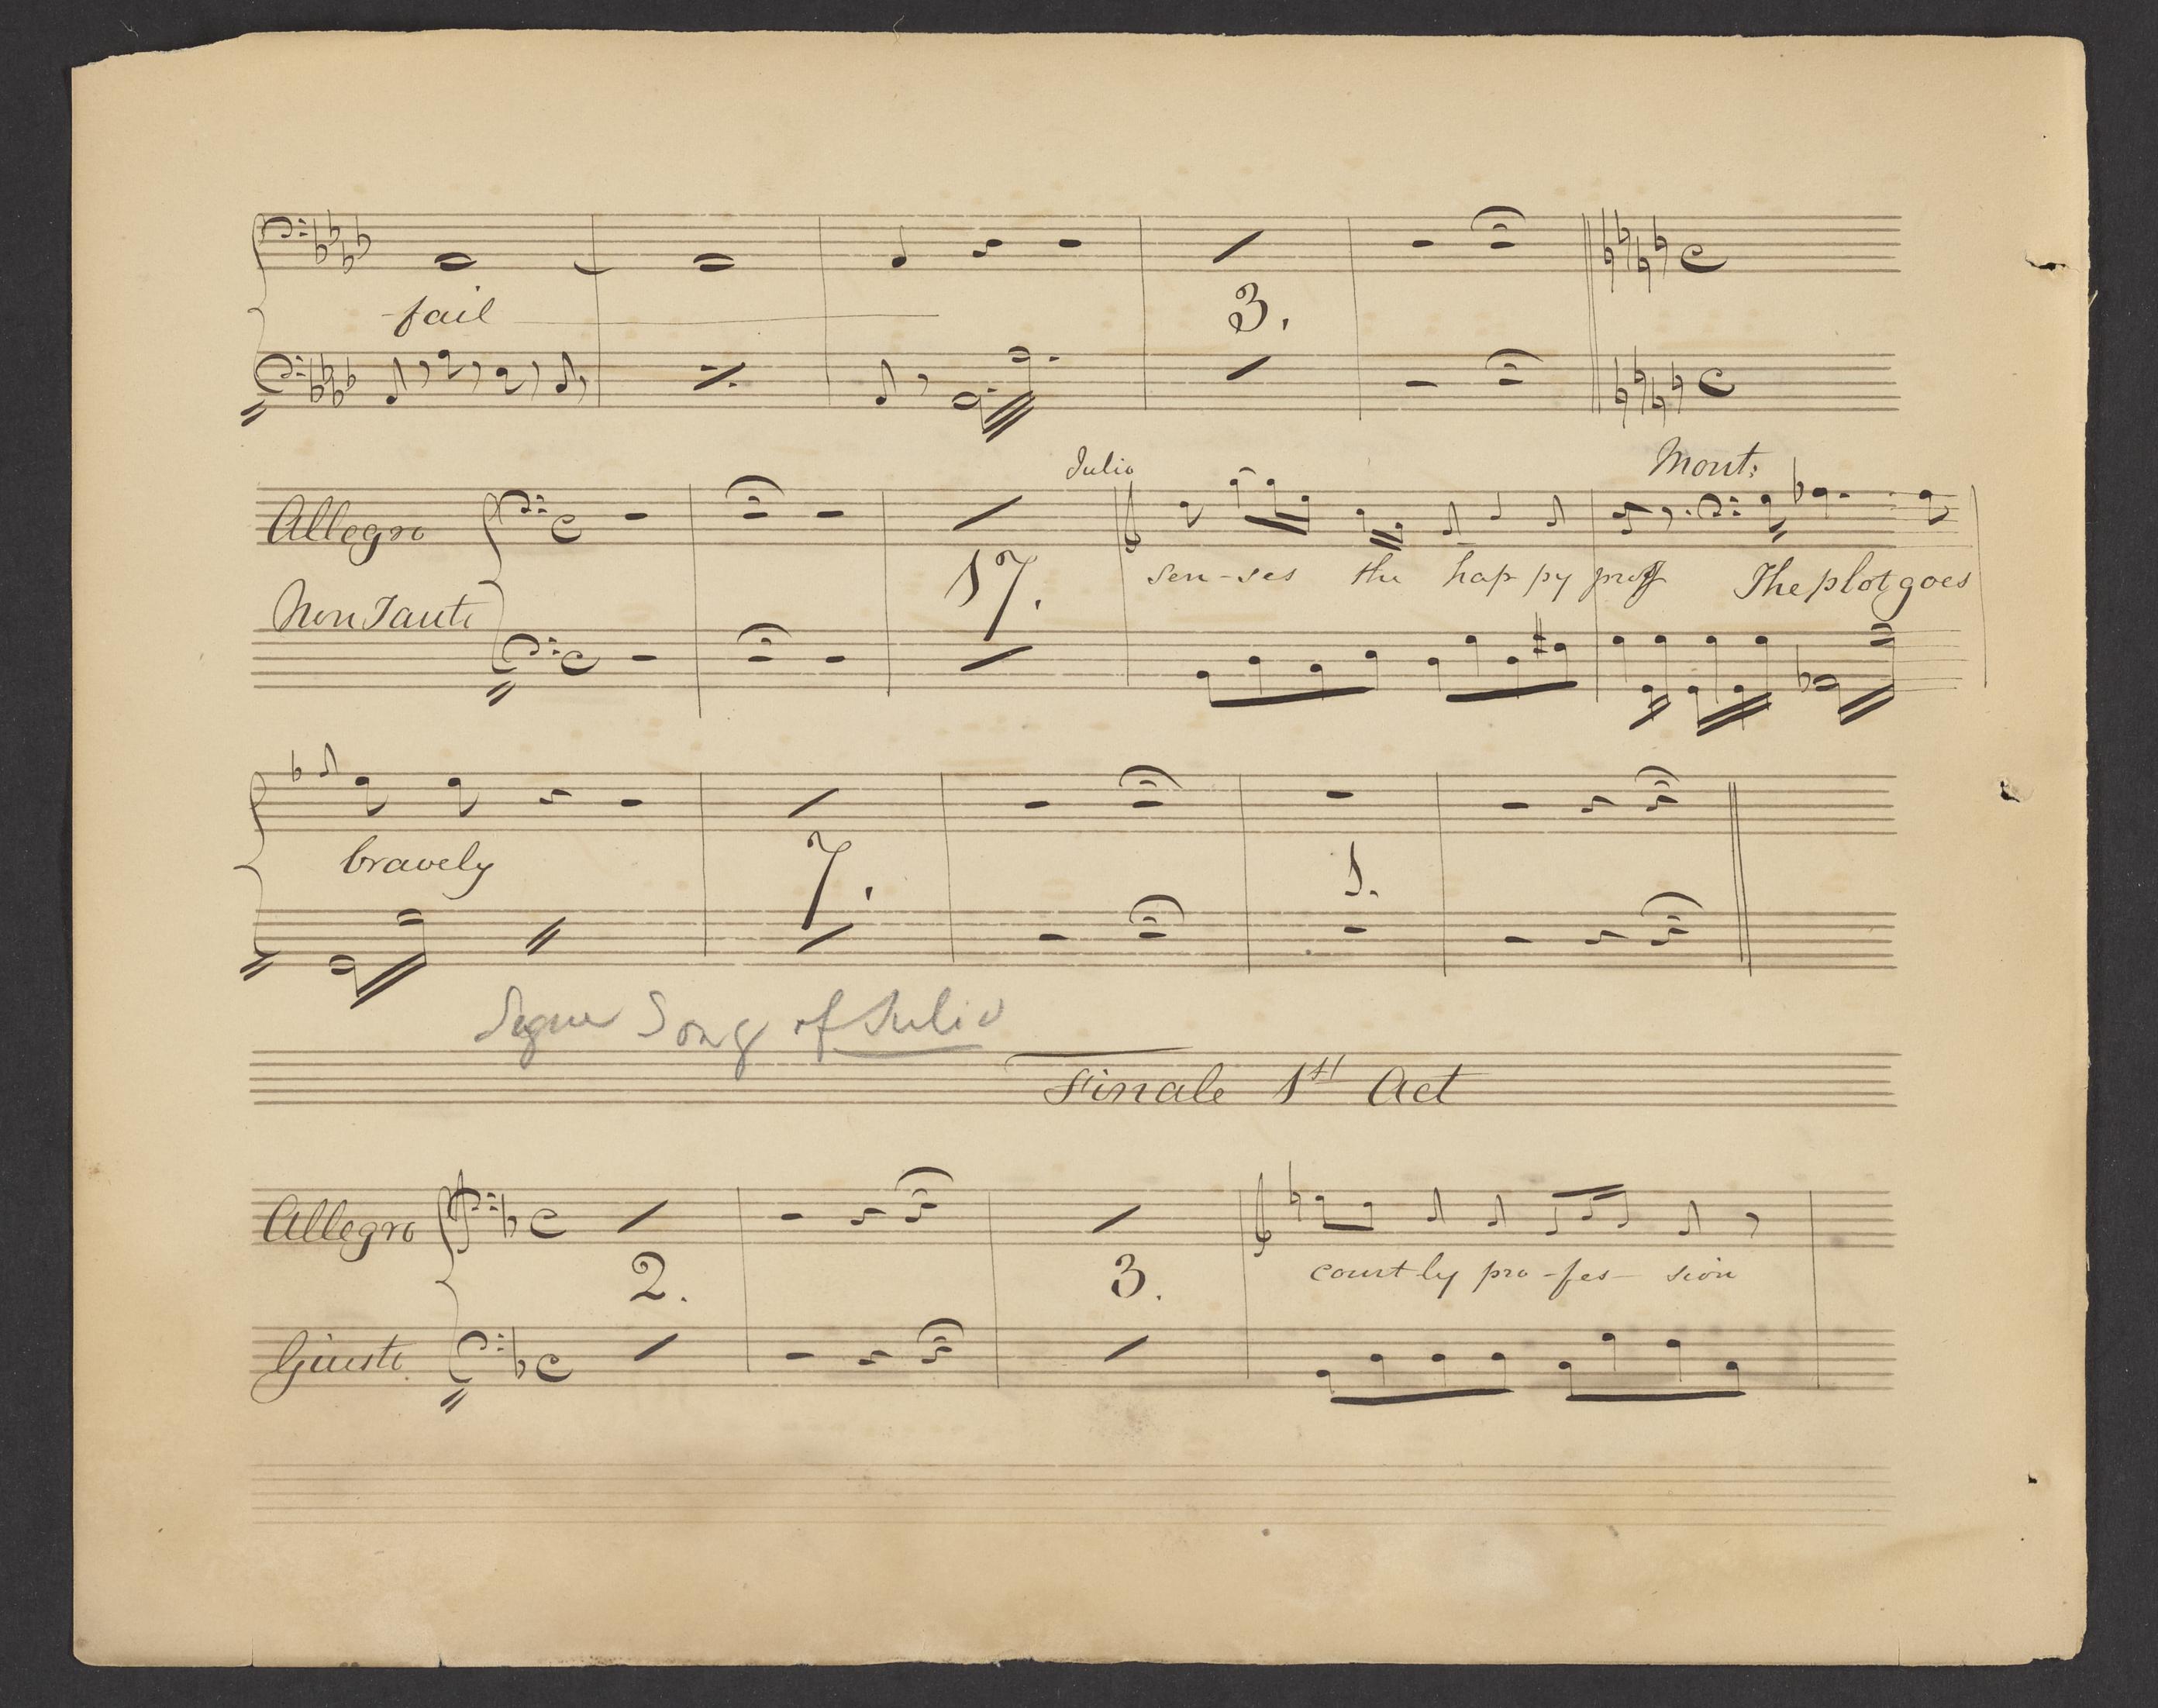 fail
3.
Julio
Mont:
Allegro
17.
sen-ses the hap py The plot goes
Non Tanto
bravely
7.
1.
Segue Song of Julio
Finale 1st Act
Allegro
2.
3.
court ly pro-fes-sion
Giusto.